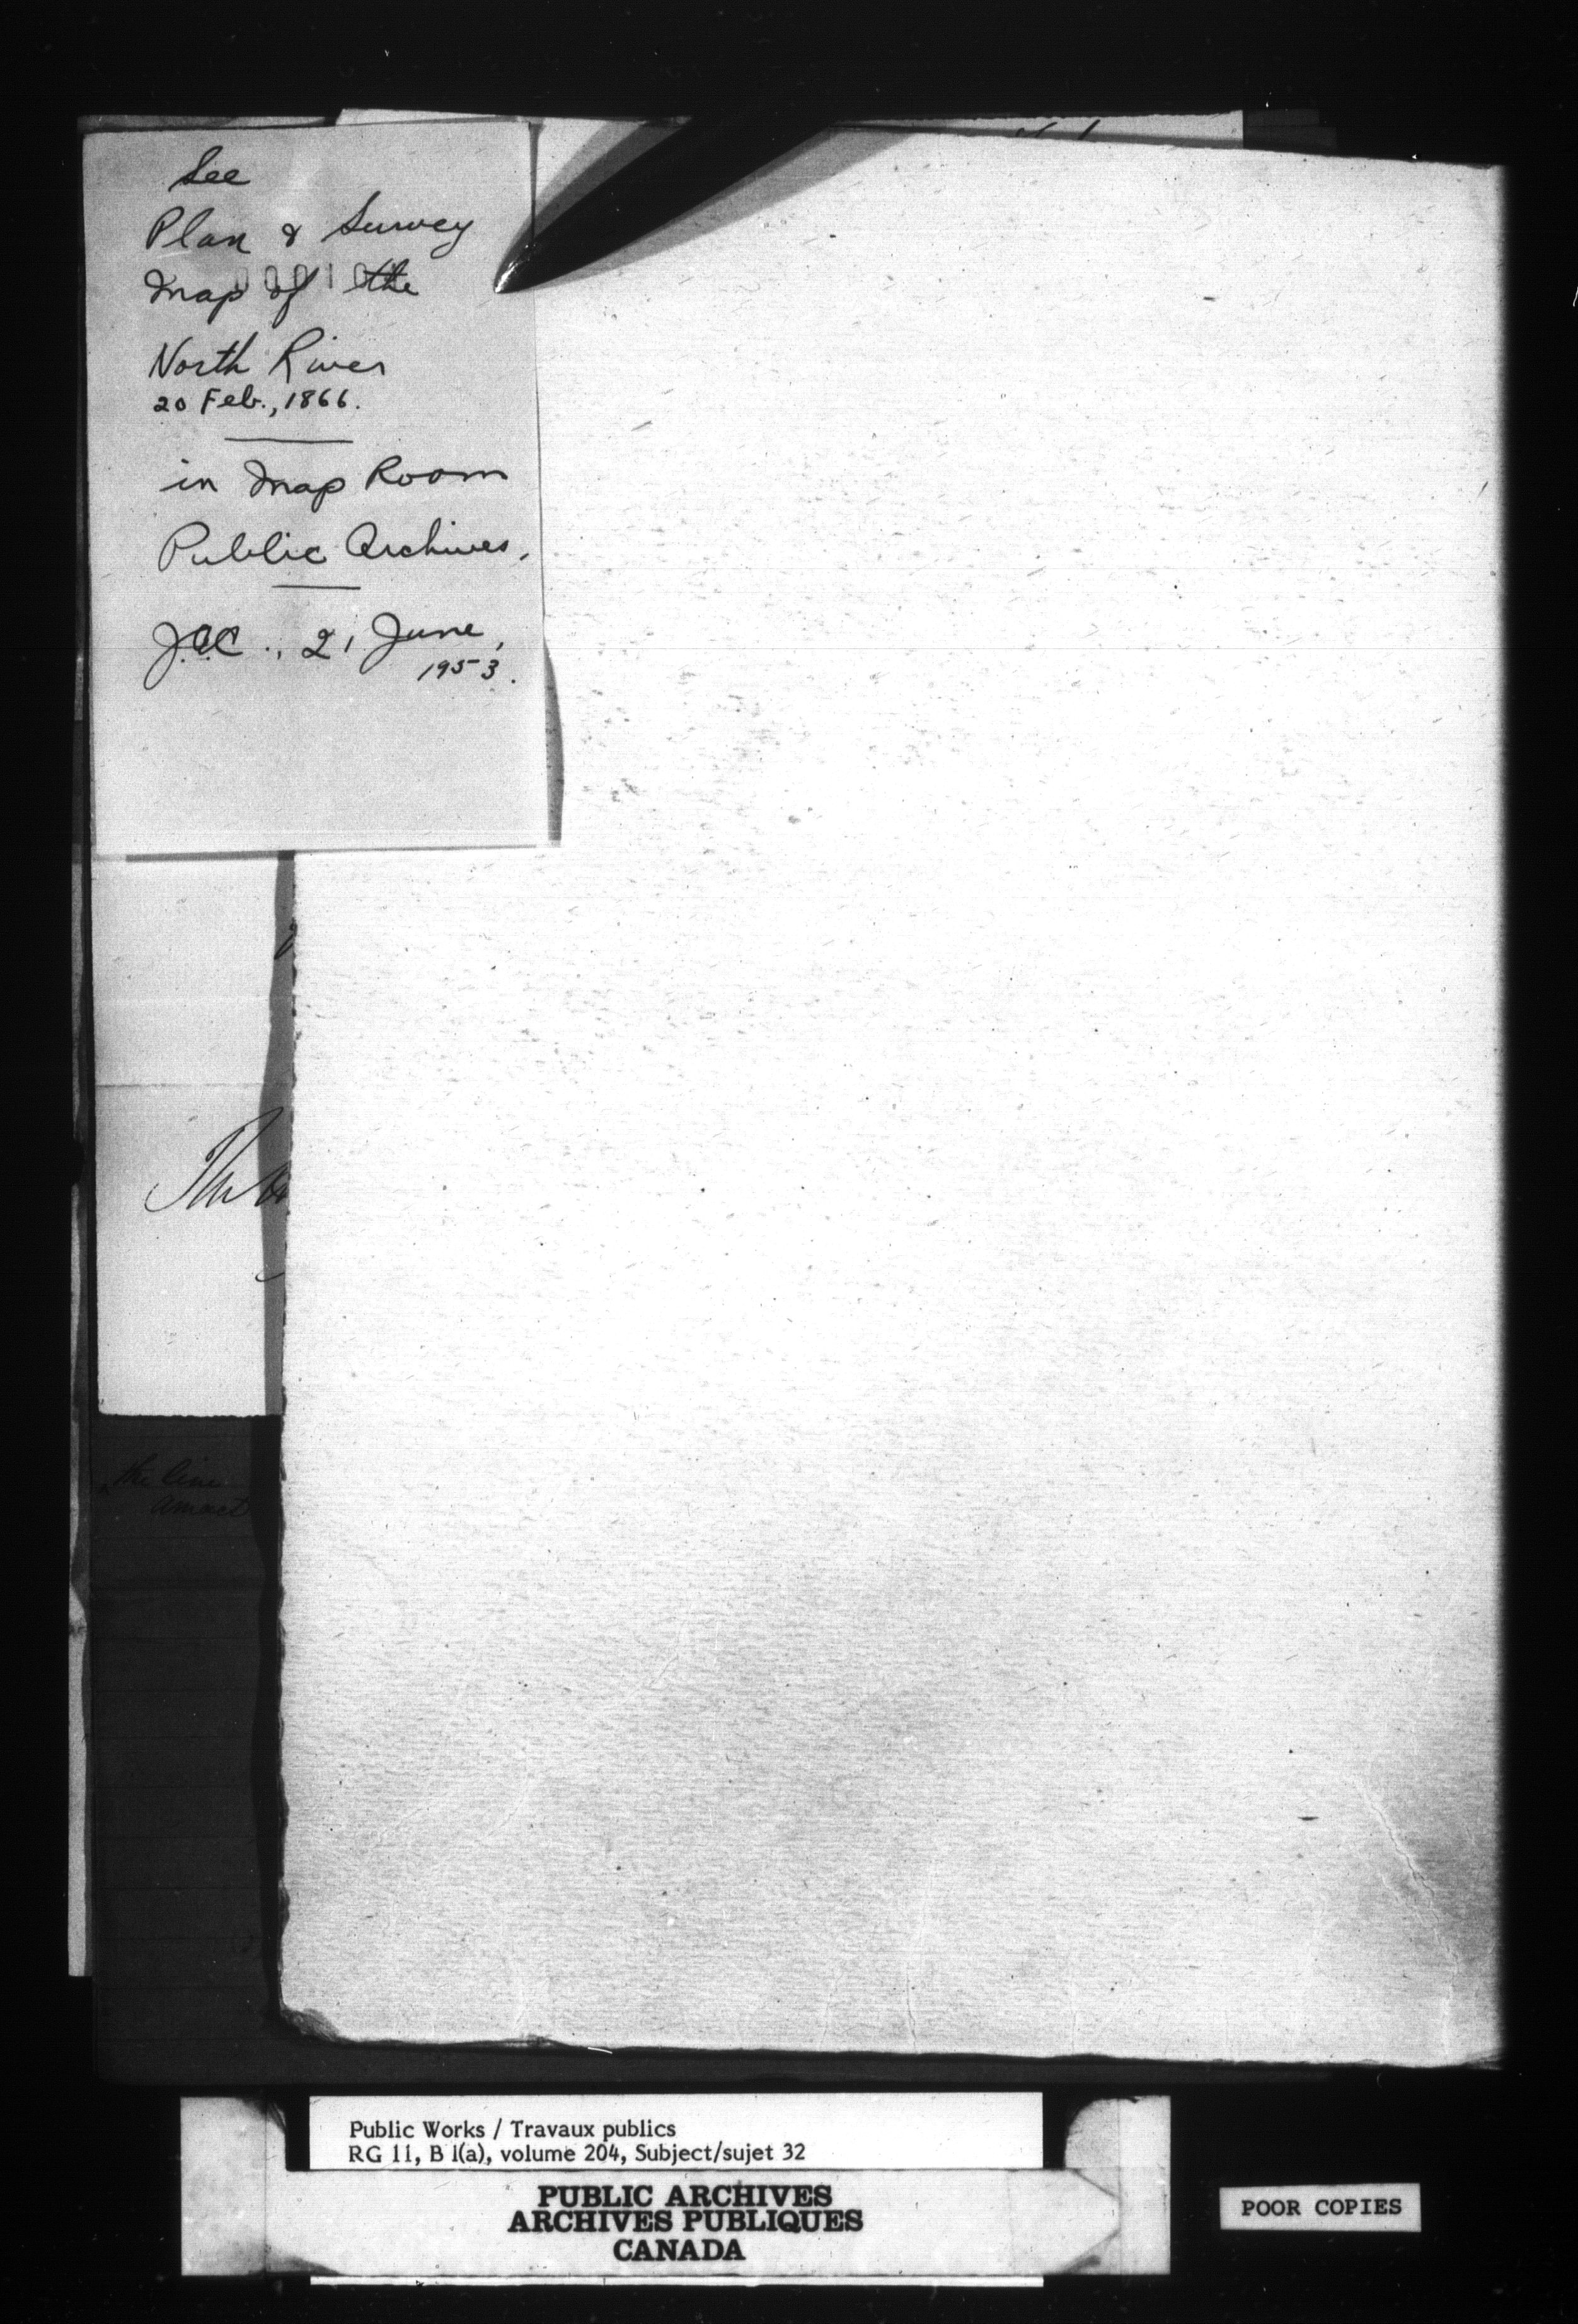 See
Plan & Survey
Map of the
North River
20 Feb., 1866.
in Map Room
Public Archives.
J.A.C., 21 June,
1953.
the line
Public Works / Travaux publics
RG 11, B 1(a), volume 204, Subject/sujet 32
PUBLIC ARCHIVES
ARCHIVES PUBLIQUES
CANADA
POOR COPIES